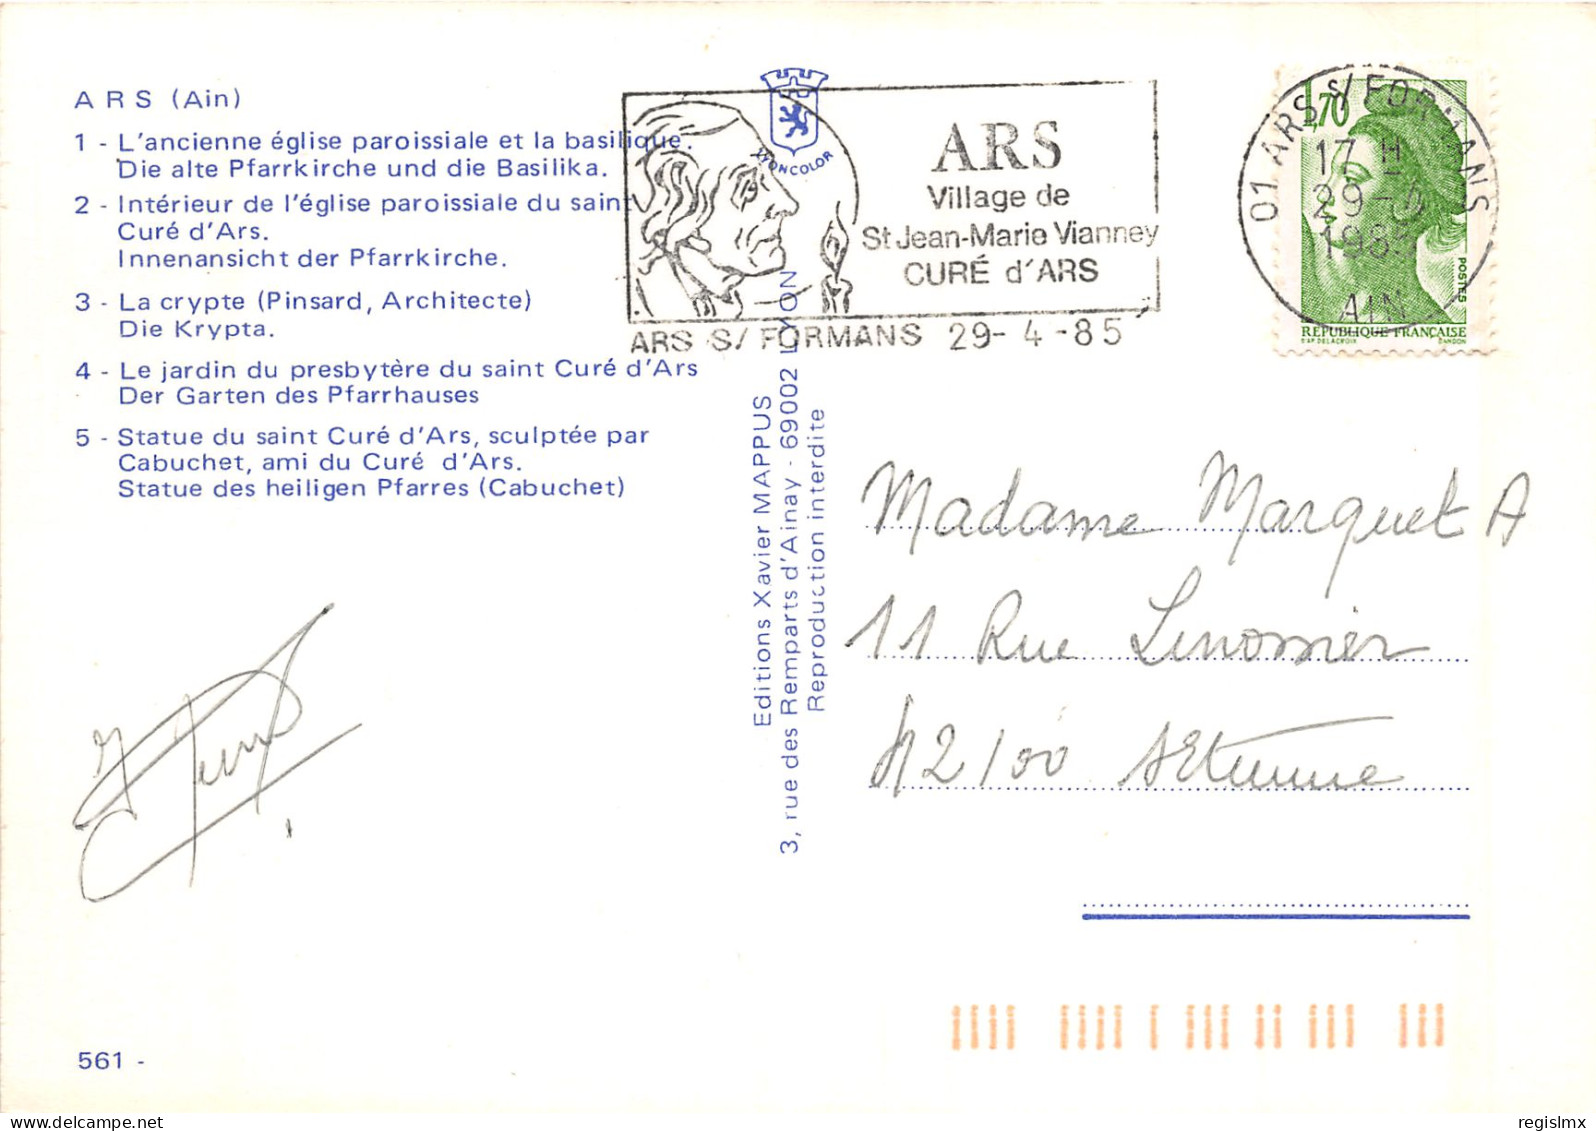 ARS (Ain)
1 - L'ancienne église paroissiale et la basilique.
Die alte Pfarrkirche und die Basilika.
2 - Intérieur de l'église paroissiale du saint
Curé d'Ars.
Innenansicht der Pfarrkirche.
3 - La crypte (Pinsard, Architecte)
Die Krypta.
4 - Le jardin du presbytère du saint Curé d'Ars
Der Garten des Pfarrhauses
5 - Statue du saint Curé d'Ars, sculptée par
Cabuchet, ami du Curé d'Ars.
Statue des heiligen Pfarres (Cabuchet)
561 -
LYONCOLOR
Editions Xavier MAPPUS
3, rue des Remparts d'Ainay - 69002 LYON
Reproduction interdite
ARS
Village de
St Jean-Marie Vianney
CURÉ d'ARS
ARS S/ FORMANS 29-4-85
01 ARS S/FORMANS
17 H
29-
AIN
1,70
POSTES
RÉPUBLIQUE FRANÇAISE
D'AP. DELACROIX GANDON
Madame Marquet A
11 Rue
42100 StEtienne
regislmx